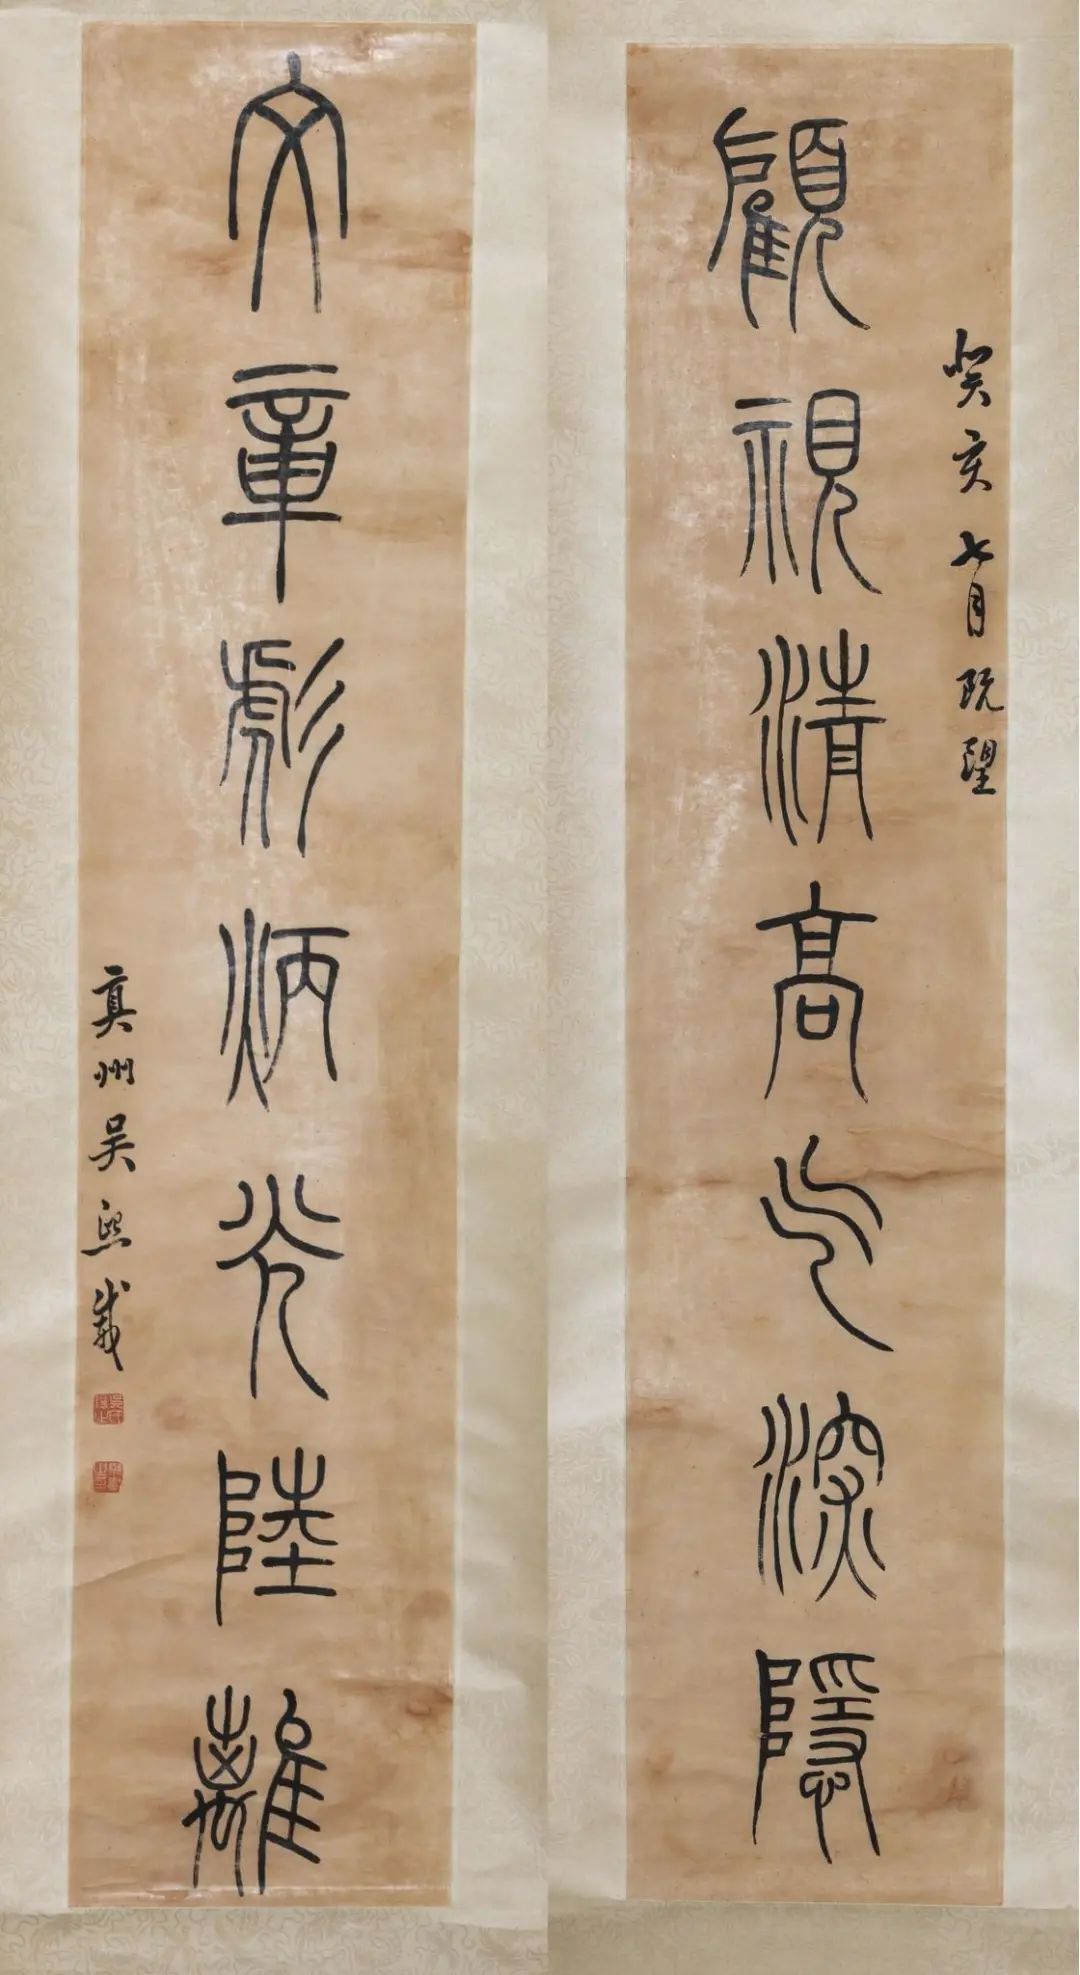 癸亥七月既望
顧視清高气深隱
文章彪炳光陸離
真州吳熙載